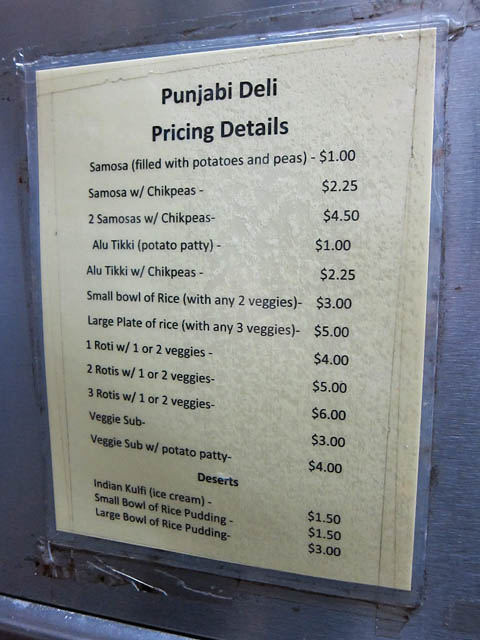 Punjabi Deli
Pricing Details
Samosa (filled with potatoes and peas) - $1.00
Samosa w/ Chikpeas - $2.25
2 Samosas w/ Chikpeas- $4.50
Alu Tikki (potato patty) - $1.00
Alu Tikki w/ Chikpeas - $2.25
Small bowl of Rice (with any 2 veggies)- $3.00
Large Plate of rice (with any 3 veggies)- $5.00
1 Roti w/ 1 or 2 veggies - $4.00
2 Rotis w/ 1 or 2 veggies- $5.00
3 Rotis w/ 1 or 2 veggies- $6.00
Veggie Sub- $3.00
Veggie Sub w/ potato patty- $4.00
Deserts
Indian Kulfi (ice cream) - $1.50
Small Bowl of Rice Pudding - $1.50
Large Bowl of Rice Pudding- $3.00